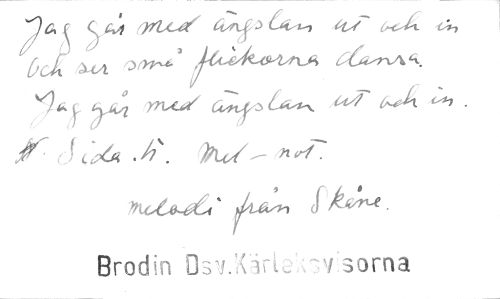 Jag går med ängslan ut och in
och ser små flickorna dansa.
Jag går med ängslan ut och in.
Sida. 5. Mel-not.
melodi från Skåne.
Brodin Dsv.Kärleksvisorna